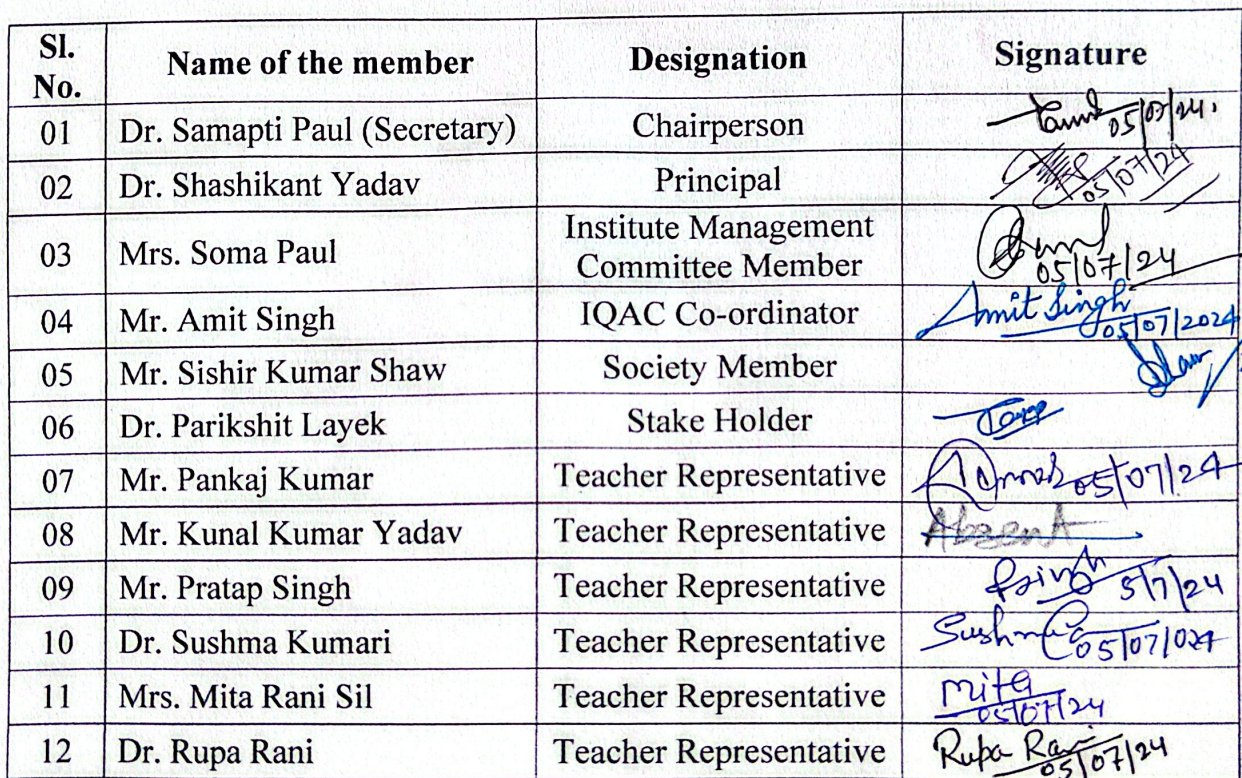 Sl. No. Name of the member Designation Signature
01 Dr. Samapti Paul (Secretary) Chairperson 05/07/24
02 Dr. Shashikant Yadav Principal 05/07/24
03 Mrs. Soma Paul Institute Management Committee Member 05/07/24
04 Mr. Amit Singh IQAC Co-ordinator Amit Singh 05/07/2024
05 Mr. Sishir Kumar Shaw Society Member
06 Dr. Parikshit Layek Stake Holder
07 Mr. Pankaj Kumar Teacher Representative 05/07/24
08 Mr. Kunal Kumar Yadav Teacher Representative Absent
09 Mr. Pratap Singh Teacher Representative PSingh 5/7/24
10 Dr. Sushma Kumari Teacher Representative Sushma 05/07/024
11 Mrs. Mita Rani Sil Teacher Representative Mita 05/07/24
12 Dr. Rupa Rani Teacher Representative Rupa Rani 05/07/24